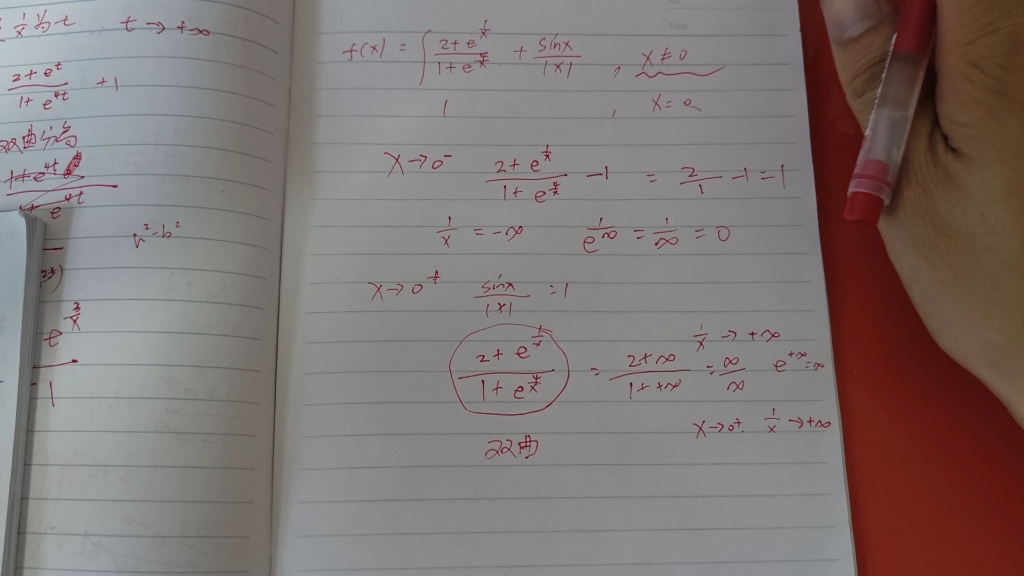 1/x 为 t t → +∞
(2 + e^t)/(1 + e^{4t}) + 1
双曲
1+e^{4t}
e^{4t}
a^2 - b^2
e^{3/x}
1
f(x) = { (2 + e^{1/x})/(1 + e^{4/x}) + sinx/|x| , x ≠ 0
1 , x = 0
x → 0^- (2 + e^{1/x})/(1 + e^{4/x}) - 1 = 2/1 - 1 = 1
1/x = -∞ 1/e^∞ = 1/∞ = 0
x → 0^+ sinx/|x| = 1
1/x → +∞
(2 + e^{1/x})/(1 + e^{4/x}) = (2+∞)/(1+ +∞) = ∞/∞ e^{+∞} = ∞
x → 0^+. 1/x → +∞
双曲